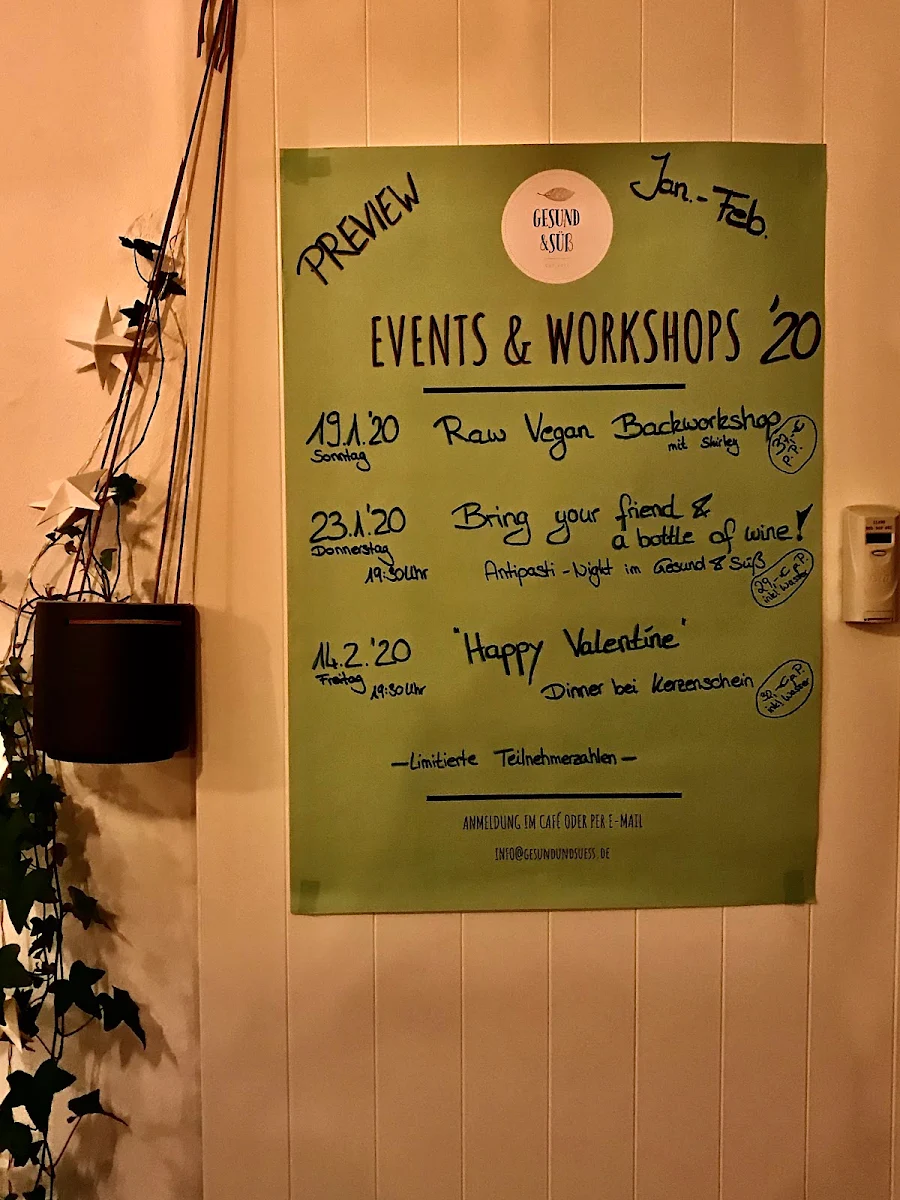 PREVIEW
Jan.-Feb.
GESUND
&SÜß
EVENTS & WORKSHOPS '20
19.1.'20 Raw Vegan Backworkshop
Sonntag mit Shirley
P.P.
23.1.'20 Bring your friend &
a bottle of wine!
Donnerstag
19:30Uhr Antipasti-Night im Gesund & Süß
29,-€ p.P.
inkl. Wasser
14.2.'20 "Happy Valentine"
Freitag 19:30Uhr Dinner bei Kerzenschein
30,-€ p.P.
inkl. Wasser
-Limitierte Teilnehmerzahlen-
ANMELDUNG IM CAFÉ ODER PER E-MAIL
INFO@GESUNDUNDSUESS.DE